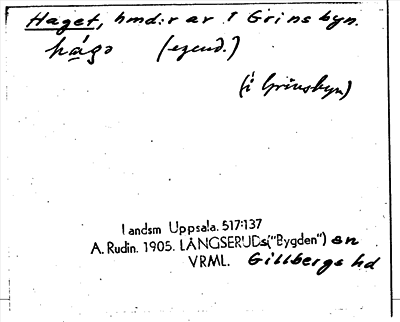 Haget, hmd:r ar i Grinsbyn.
hágə (egend.)
(i Grinsbyn)
Landsm Uppsala. 517:137
A. Rudin. 1905. LÅNGSERUDs("Bygden") sn
VRML. Gillbergs hd